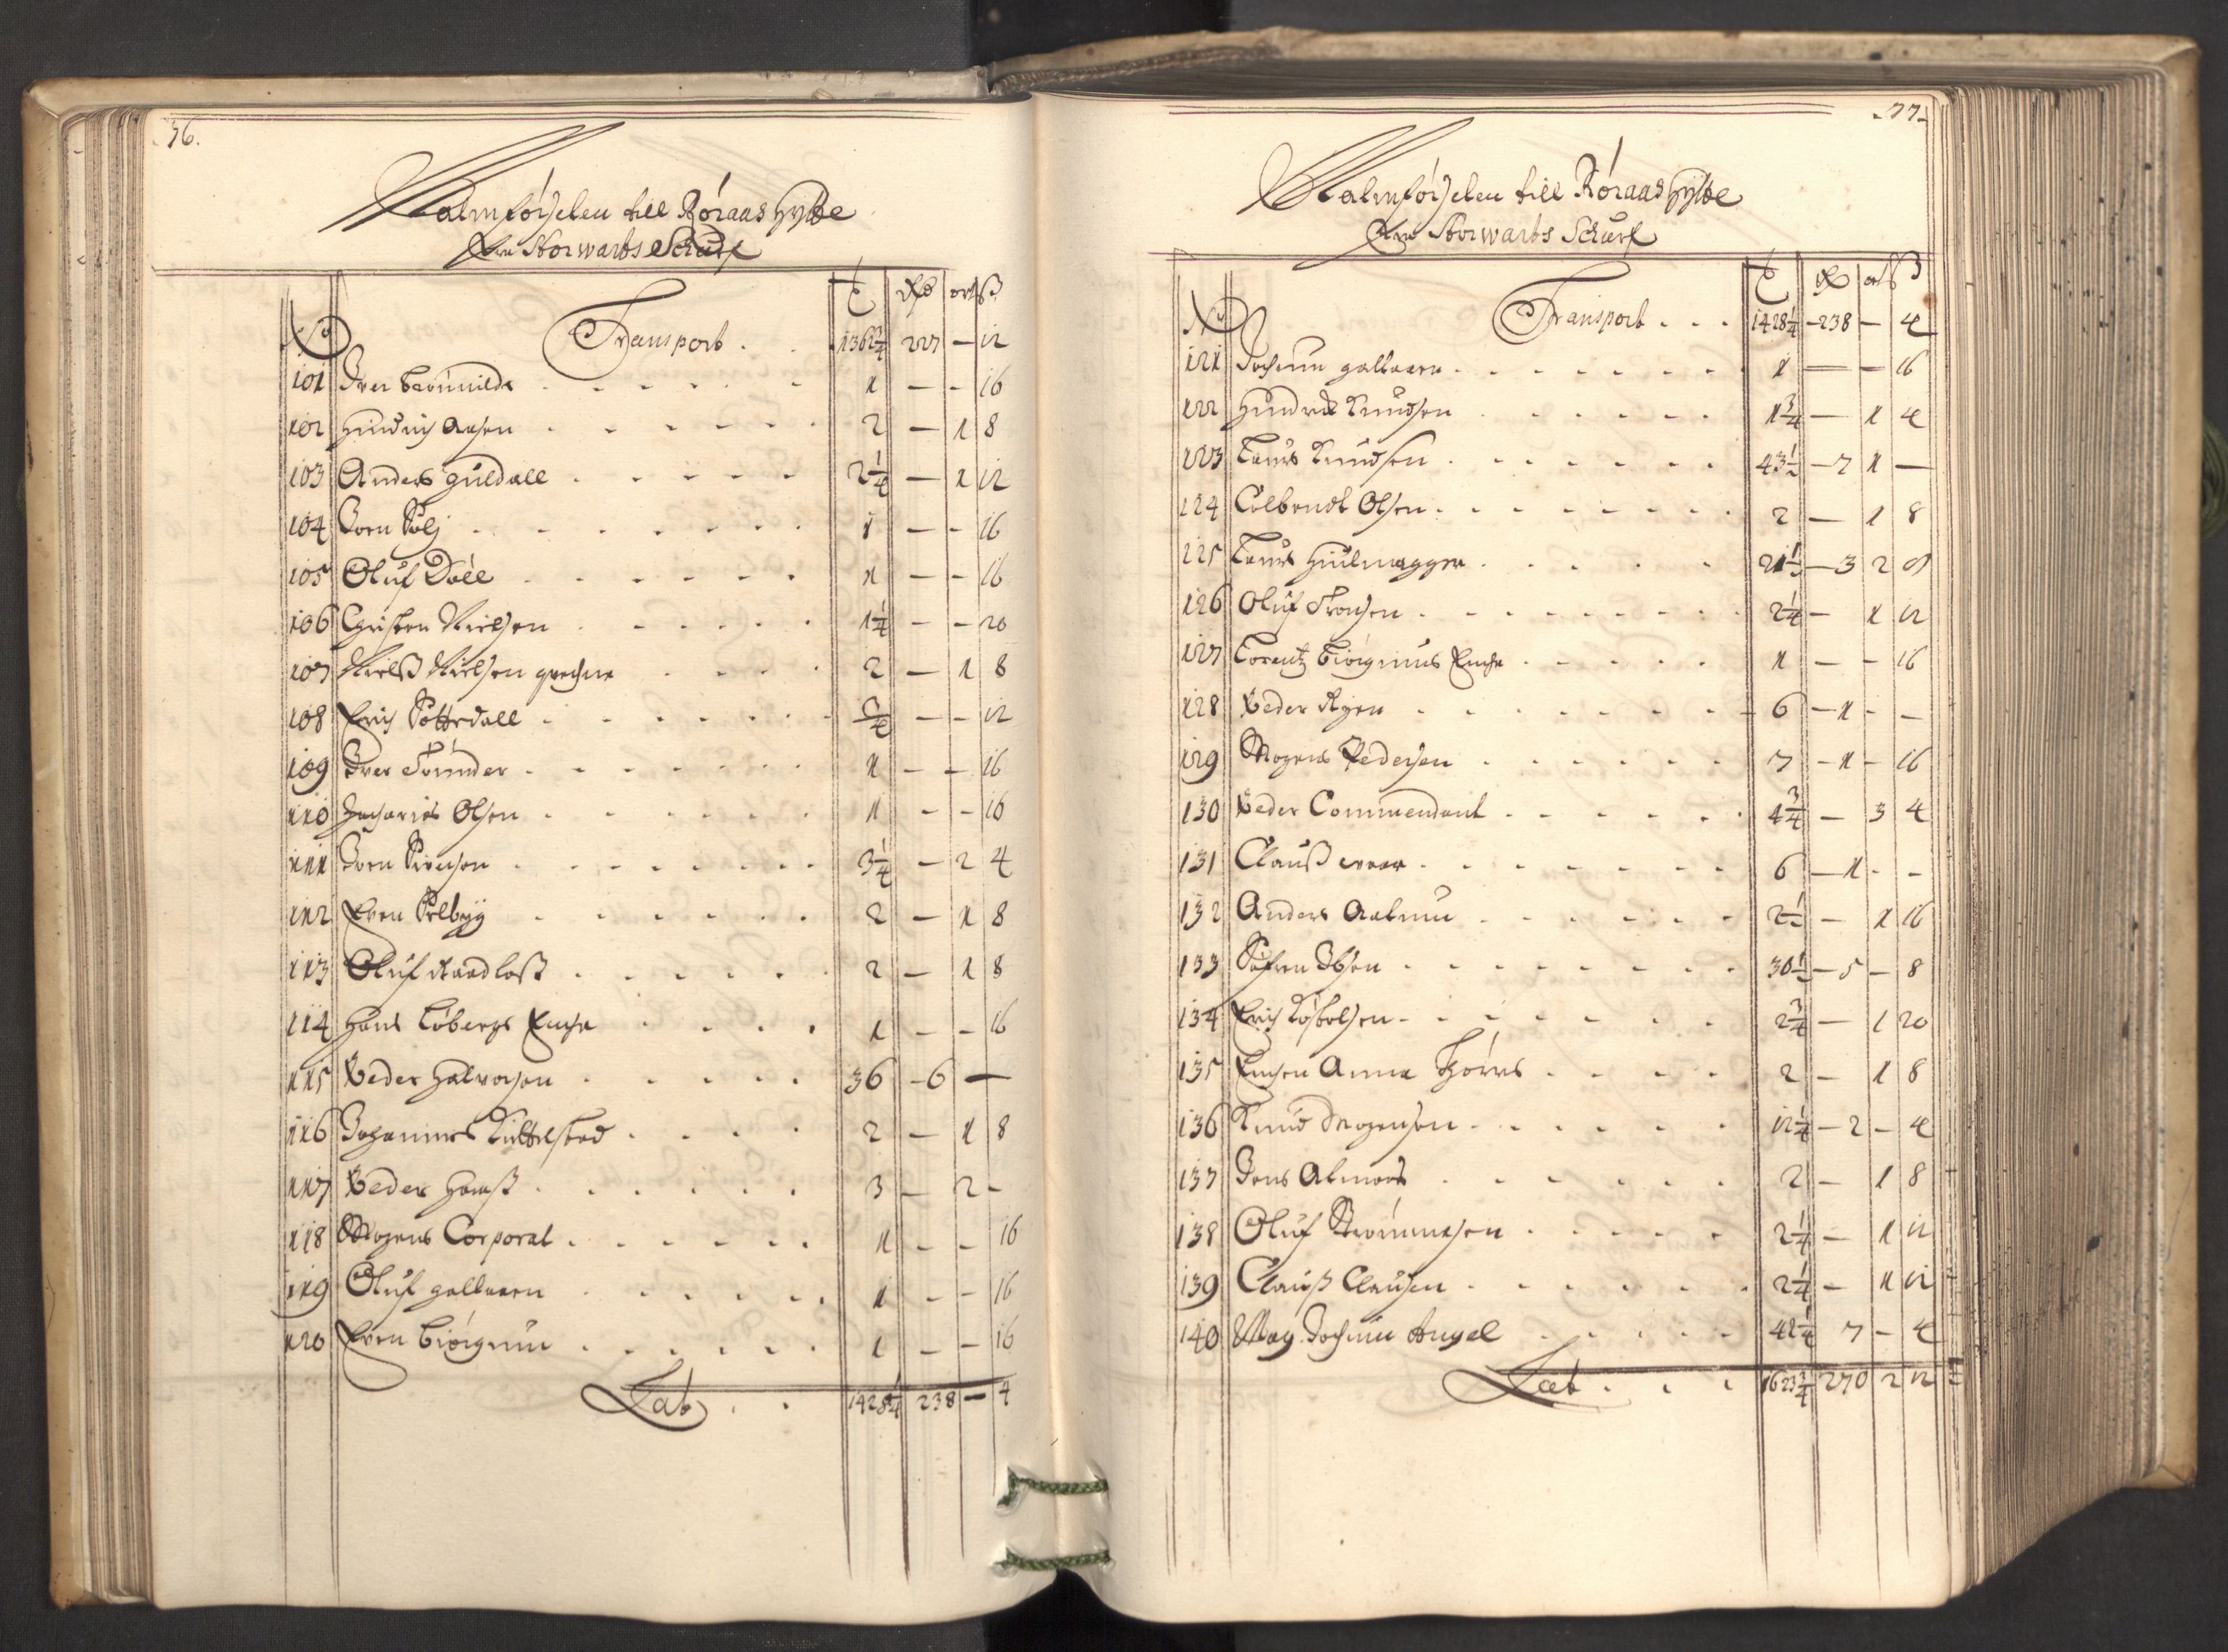 76.
Malmførselen till Røraas Hytte
fra Storwarts Schurf
No t Rd ort ß
Transport . . 1362 3/4 227 — 12
101 Iver 1 — - 16
102 Hindrich Aasen 2 — 1 8
103 Anders Guldall 2 1/4 — 1 12
104 Joen 1 — - 16
105 Oluf Doll 1 — - 16
106 Christen Nielsen 1 1/4 — - 20
107 Nielß Nielsen 2 — 1 8
108 Erich 3/4 — - 12
109 Iver Tønder 1 — - 16
110 Zacharias Olsen 1 - - 16
111 Joen Sivensen 3 1/4 — 2 4
112 Even Selbyg 2 — 1 8
113 Oluf Raadloß 2 — 1 8
114 Hans Løbergs Enche 1 — - 16
115 Peder Halvorsen 36 - 6 —
116 Johannes Kuttelstad 2 — 1 8
117 Peder Hanß 3 — 2 -
118 Mogens Corporal 1 - - 16
119 Oluf Galtaaen 1 - - 16
120 Even Biørgmin 1 — - 16
Lat . . 1428 1/4 238 — 4
77
Malmførselen till Røraas Hytte
fra Storwarts Schurf
No t Rd ort ß
Transport . . . 1428 1/4 - 238 — 4
121 Jochum Galtaaen 1 — — 16
122 Hendrich Knudsen 1 3/4 — 1 4
123 Laurs Knudsen 43 1/2 - 7 1 —
124 Colbendt Olsen 2 — 1 8
125 Laurs Hiulmagger 21 1/2 - 3 2 8
126 Oluf Tronsen 2 1/4 — 1 12
127 Lorentz Biørgmins Enche 1 — - 16
128 Peder Ryen 6 — 1 - -
129 Mogens Pedersen 7 - 1 - 16
130 Peder Commendant 4 3/4 — 3 4
131 Clauß 6 — 1 - -
132 Anders Aalmin 2 1/2 — 1 16
133 Søfren Ibsen 30 1/2 - 5 - 8
134 Erich 2 3/4 — 1 20
135 Enchen Anna Tørres 2 — 1 8
136 Knud Mogensen 12 1/4 - 2 - 4
137 Jens Aalmoes 2 — 1 8
138 Oluf 2 1/4 — 1 12
139 Clauß Clausen 2 1/4 — 1 12
140 Mag. Jochum Angel 42 1/4 7 - 4
Lat . . . 1623 3/4 270 2 12